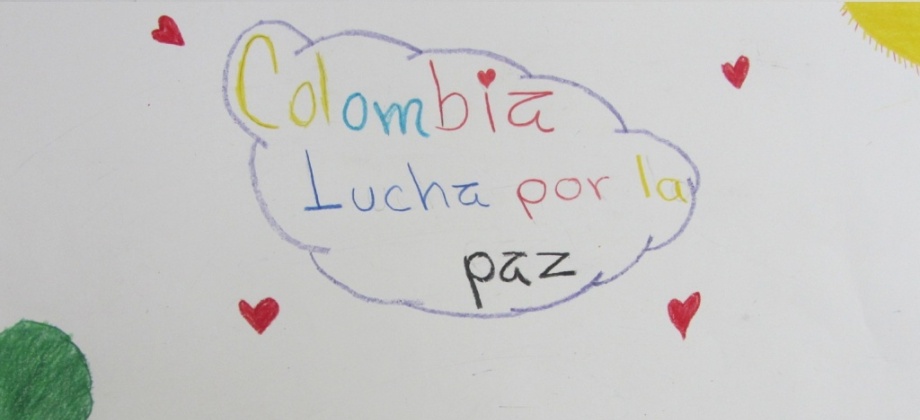 Colombia
Lucha por la
paz